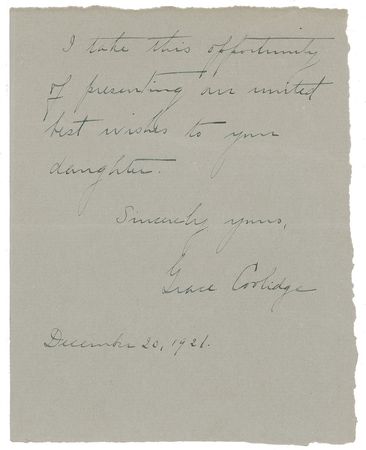 I take this opportunity
of presenting our united
best wishes to your
daughter.
Sincerely yours,
Grace Coolidge
December 20, 1921.